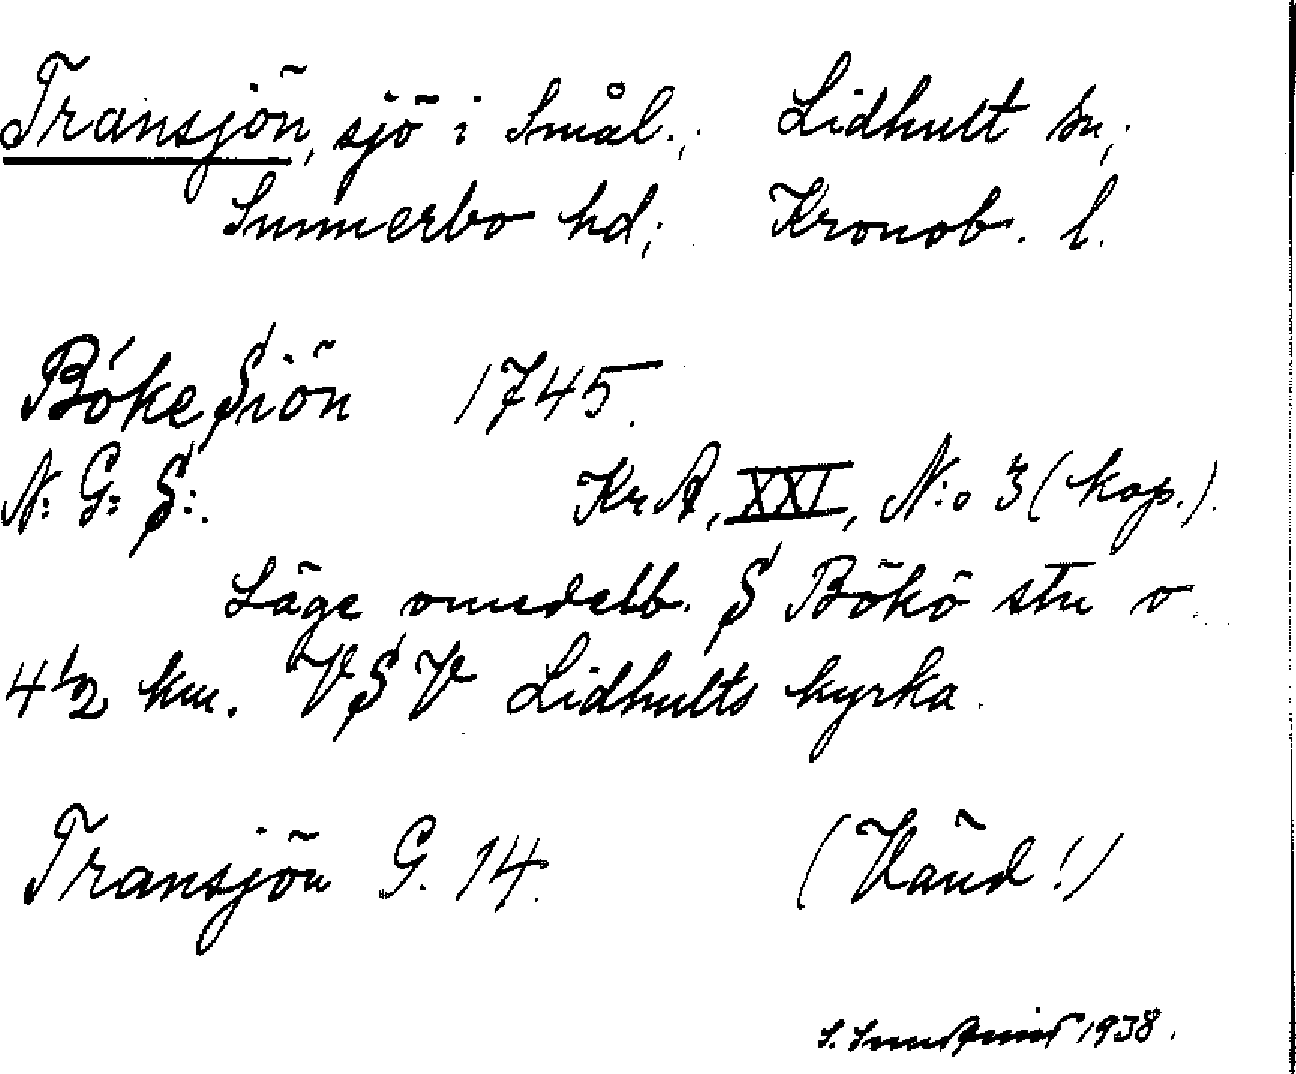 Transjön, sjö i Smål.; Lidhult sn;
Sunnerbo hd; Kronob. l.
Böke Siön 1745.
N: G: S:. KrA, XXI, N:o 3 (kop.).
Läge omedelb. S Bökö stn o
4 1/2 km. VSV Lidhults kyrka.
Transjön G. 14. (Vänd!)
S. 1938.